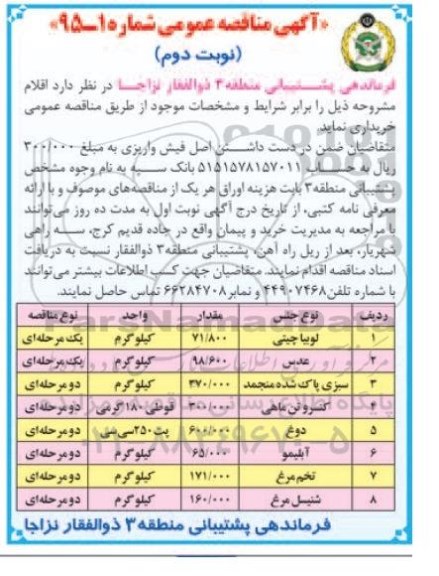 «آگهی مناقصه عمومی شماره ۱ـ۹۵»
(نوبت دوم)
فرماندهی پشتیبانی منطقه۳ ذوالفقار نزاجا در نظر دارد اقلام
مشروحه ذیل را برابر شرایط و مشخصات موجود از طریق مناقصه عمومی
خریداری نماید
متقاضیان ضمن در دست داشتن اصل فیش واریزی به مبلغ ۳۰۰/۰۰۰
ریال به حساب ۵۱۵۱۵۷۸۱۵۷۰۱۱ بانک سپه به نام وجوه مشخص
پشتیبانی منطقه۳ بابت هزینه اوراق هر یک از مناقصه‌های موصوف و با ارائه
معرفی نامه کتبی، از تاریخ درج آگهی نوبت اول به مدت ده روز می‌توانند
با مراجعه به مدیریت خرید و پیمان واقع در جاده قدیم کرج، سه راهی
شهریار، بعد از ریل راه آهن، پشتیبانی منطقه۳ ذوالفقار نسبت به دریافت
اسناد مناقصه اقدام نمایند. متقاضیان جهت کسب اطلاعات بیشتر می‌توانند
با شماره تلفن ۴۴۹۰۷۴۶۸ و نمابر ۶۶۲۸۴۷۰۸ تماس حاصل نمایند.
ردیف نوع جنس مقدار واحد نوع مناقصه
۱ لوبیا چیتی ۷۱/۸۰۰ کیلوگرم یک مرحله‌ای
۲ عدس ۹۸/۶۰۰ کیلوگرم یک مرحله‌ای
۳ سبزی پاک شده منجمد ۳۷۰/۰۰۰ کیلوگرم دو مرحله‌ای
۴ کنسرو تن ماهی ۳۰۰/۰۰۰ قوطی ۱۸۰ گرمی دو مرحله‌ای
۵ دوغ ۶۰۰/۰۰۰ پت ۲۵۰ سی‌سی دو مرحله‌ای
۶ آبلیمو ۶۵/۰۰۰ کیلوگرم دو مرحله‌ای
۷ تخم مرغ ۱۷۱/۰۰۰ کیلوگرم دو مرحله‌ای
۸ شنیسل مرغ ۱۶۰/۰۰۰ کیلوگرم دو مرحله‌ای
فرماندهی پشتیبانی منطقه ۳ ذوالفقار نزاجا